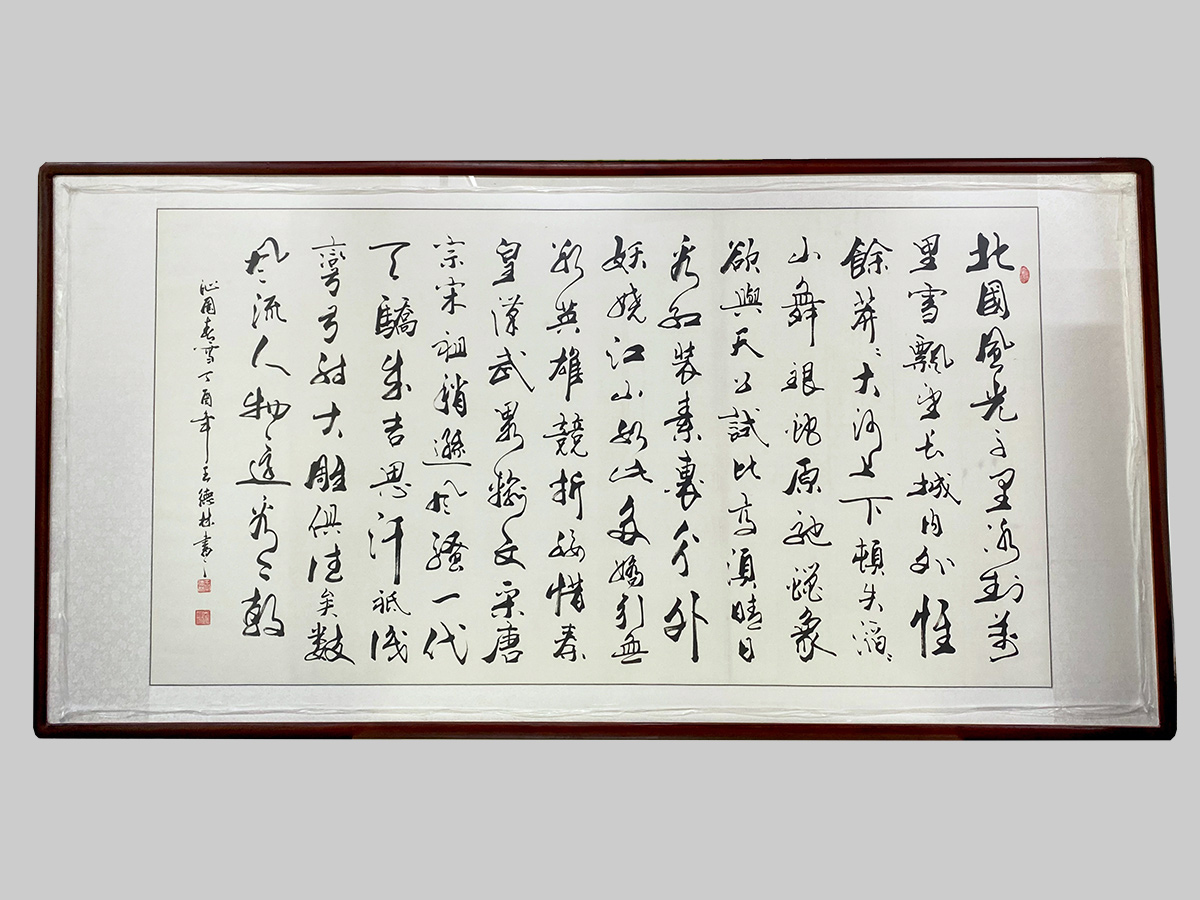 北國風光千里冰封萬
里雪飄望长城内外惟
餘莽〻大河上下頓失滔〻
山舞銀蛇原馳蠟象
欲與天公試比高須晴日
看紅裝素裹分外
妖嬈江山如此多嬌引無
數英雄競折腰惜秦
皇漢武略輸文采唐
宗宋祖稍遜風騷一代
天驕成吉思汗祗識
彎弓射大雕俱往矣數
風流人物還看今朝
沁園春雪丁酉年王德林書